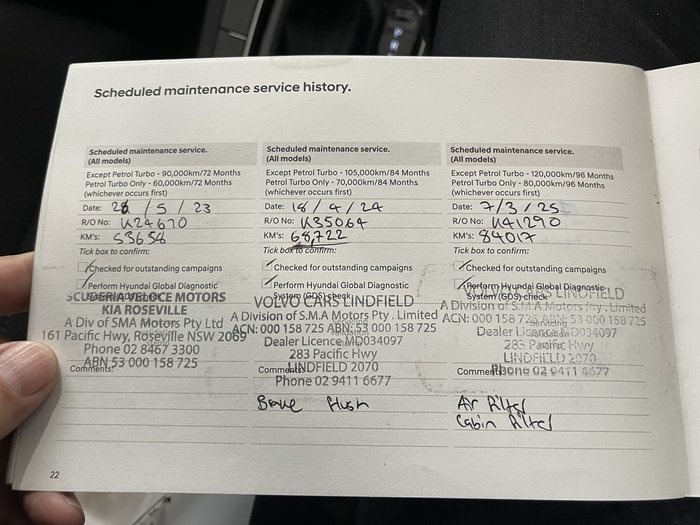 Scheduled maintenance service history.
Scheduled maintenance service.
(All models)
Except Petrol Turbo - 90,000km/72 Months
Petrol Turbo Only - 60,000km/72 Months
(whichever occurs first)
Date: 28 / 5 / 23
R/O No: K24670
KM's: 53658
Tick box to confirm:
Checked for outstanding campaigns
Perform Hyundai Global Diagnostic
SCUDERIA VELOCE MOTORS
KIA ROSEVILLE
A Div of SMA Motors Pty Ltd
161 Pacific Hwy, Roseville NSW 2069
Phone 02 8467 3300
ABN 53 000 158 725
Comments:
Scheduled maintenance service.
(All models)
Except Petrol Turbo - 105,000km/84 Months
Petrol Turbo Only - 70,000km/84 Months
(whichever occurs first)
Date: 18 / 4 / 24
R/O No: K35064
KM's: 68,722
Tick box to confirm:
Checked for outstanding campaigns
Perform Hyundai Global Diagnostic
System (GDS) check
VOLVO CARS LINDFIELD
A Division of S.M.A Motors Pty . Limited
ACN: 000 158 725 ABN: 53 000 158 725
Dealer Licence MD034097
283 Pacific Hwy
LINDFIELD 2070
Phone 02 9411 6677
Comments:
Brake flush
Scheduled maintenance service.
(All models)
Except Petrol Turbo - 120,000km/96 Months
Petrol Turbo Only - 80,000km/96 Months
(whichever occurs first)
Date: 7/3/25
R/O No: K41290
KM's: 84017
Tick box to confirm:
Checked for outstanding campaigns
Perform Hyundai Global Diagnostic
System (GDS) check
VOLVO CARS LINDFIELD
A Division of S.M.A Motors Pty . Limited
ACN: 000 158 725 ABN: 53 000 158 725
Dealer Licence MD034097
283 Pacific Hwy
LINDFIELD 2070
Phone 02 9411 6677
Comments:
Air Filter
Cabin Filter
22